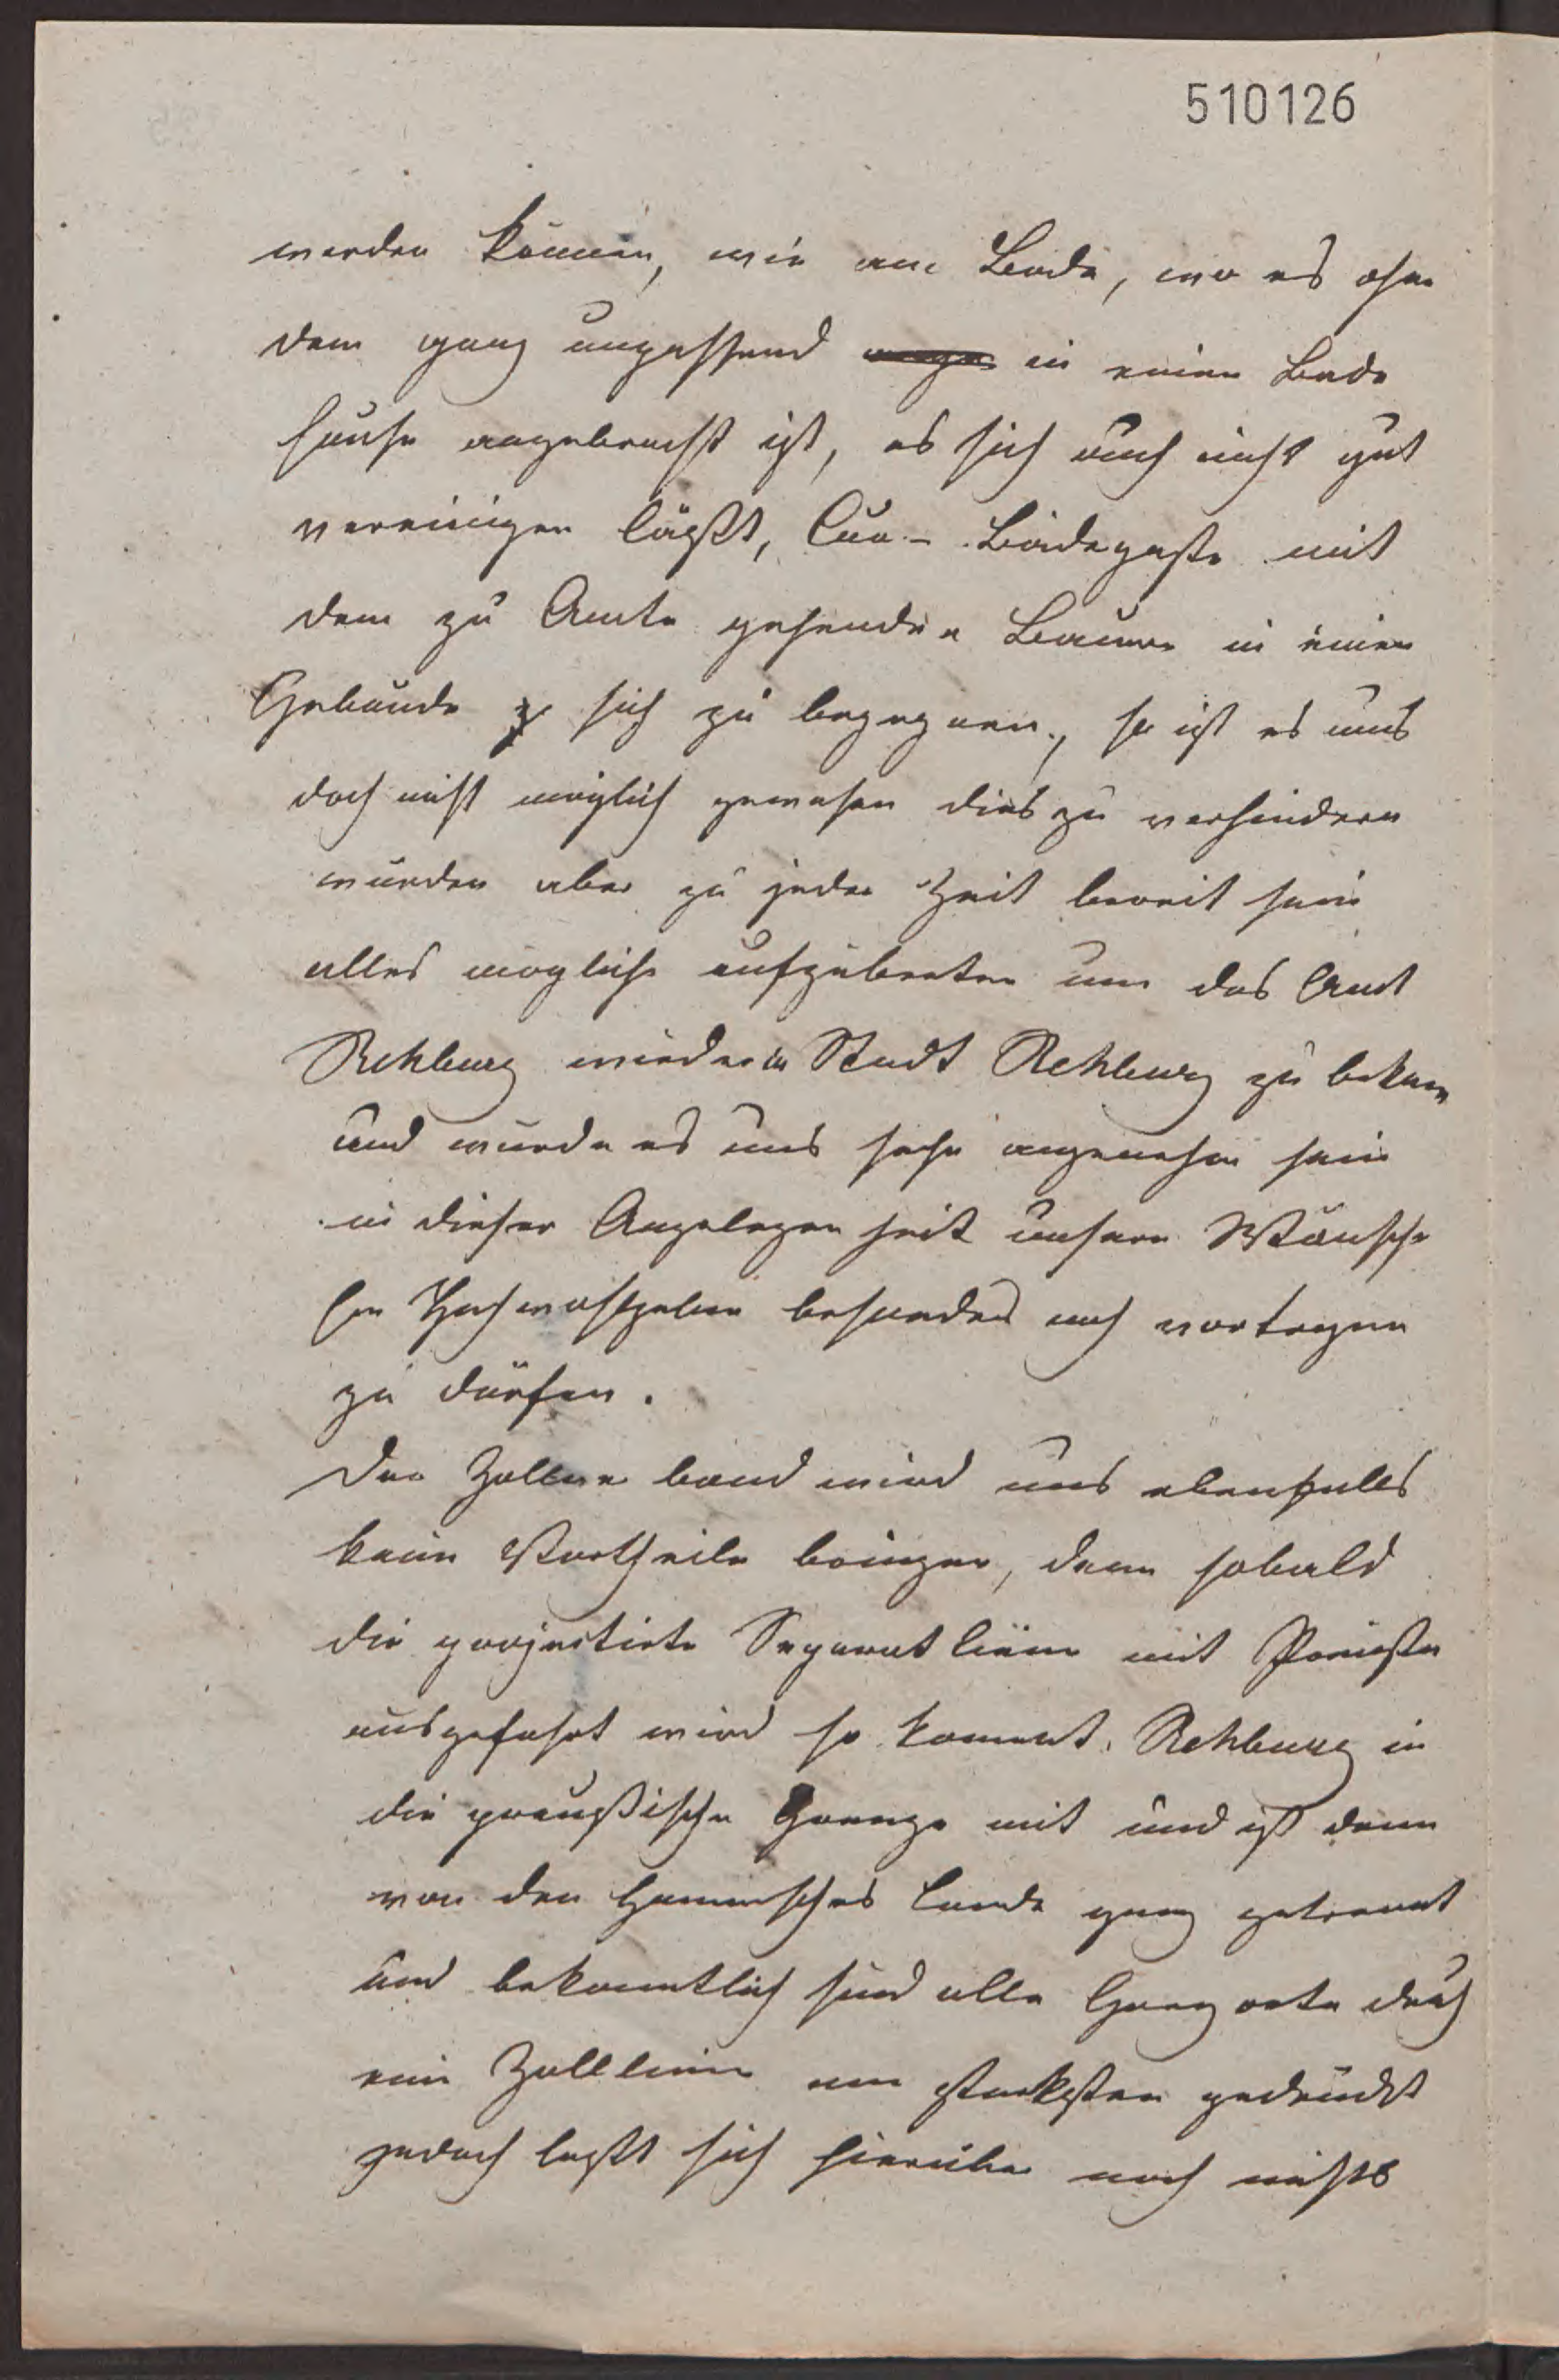 510126
werden können, wie am Bade, wo es ohne
dem ganz unpassend in einem Bade
Hause angebracht ist, es sich auch nicht gut
vereinigen läßt, Cur- Badegäste mit
dem zu Amte gehenden Bauern in einem
Gebäude sich zu begegnen, so ist es uns
doch nicht möglich gewesen dies zu verhindern
wurden aber zu jeder Zeit bereit sein
alles mögliche aufzubieten um das Amt
Rehburg wieder in Stadt Rehburg zu bekom
und wurde es uns sehr angenehm sein
in dieser Angelegenheit unsere Wünsche
Hochwohlgeborn besonders noch vortragen
zu dürfen.
Der Zollverband wird uns ebenfalls
kein Vortheile bringen, denn sobald
die projectirte Separat linie mit Preußen
ausgefuhrt wird so kommt Rehburg in
die preußische Grenze mit und ist dann
von den Hannversches Lande ganz getrennt
und bekanntlich sind alle Grenz orte durch
ein Zolllinie am starksten gedrückt
jedoch laßt sich hierüber noch nichts